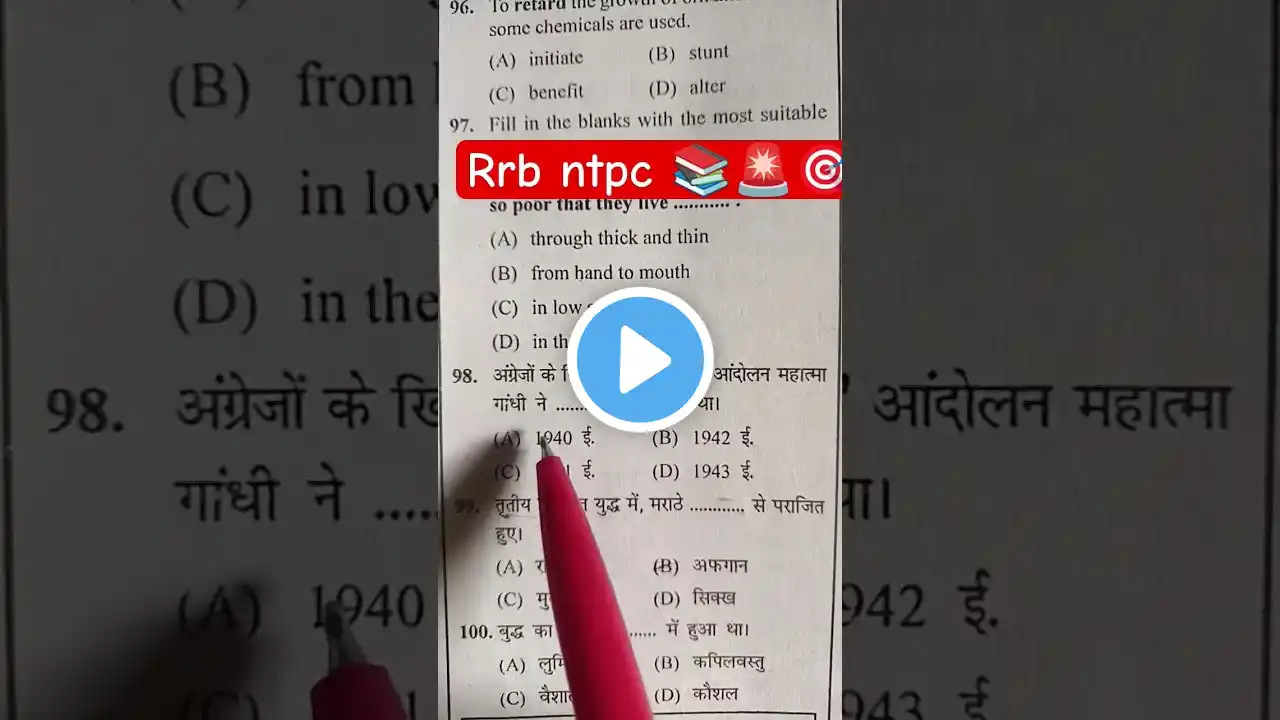 96. To retard the growth of
some chemicals are used.
(A) initiate (B) stunt
(C) benefit (D) alter
97. Fill in the blanks with the most suitable
Rrb ntpc 📚🚨🎯
so poor that they live ........... .
(A) through thick and thin
(B) from hand to mouth
(C) in low
(D) in th
98. अंग्रेजों के आंदोलन महात्मा
गांधी ने ...... था।
(A) 1940 ई. (B) 1942 ई.
(C) ई. (D) 1943 ई.
99. तृतीय युद्ध में, मराठे ............ से पराजित
हुए।
(A) (B) अफगान
(C) (D) सिक्ख
100. बुद्ध का ...... में हुआ था।
(A) (B) कपिलवस्तु
(C) (D) कौशल
(B) from
(C) in low
(D) in the
98. अंग्रेजों के आंदोलन महात्मा
गांधी ने .... था।
(A) 1940 942 ई.
(C) 943 ई.